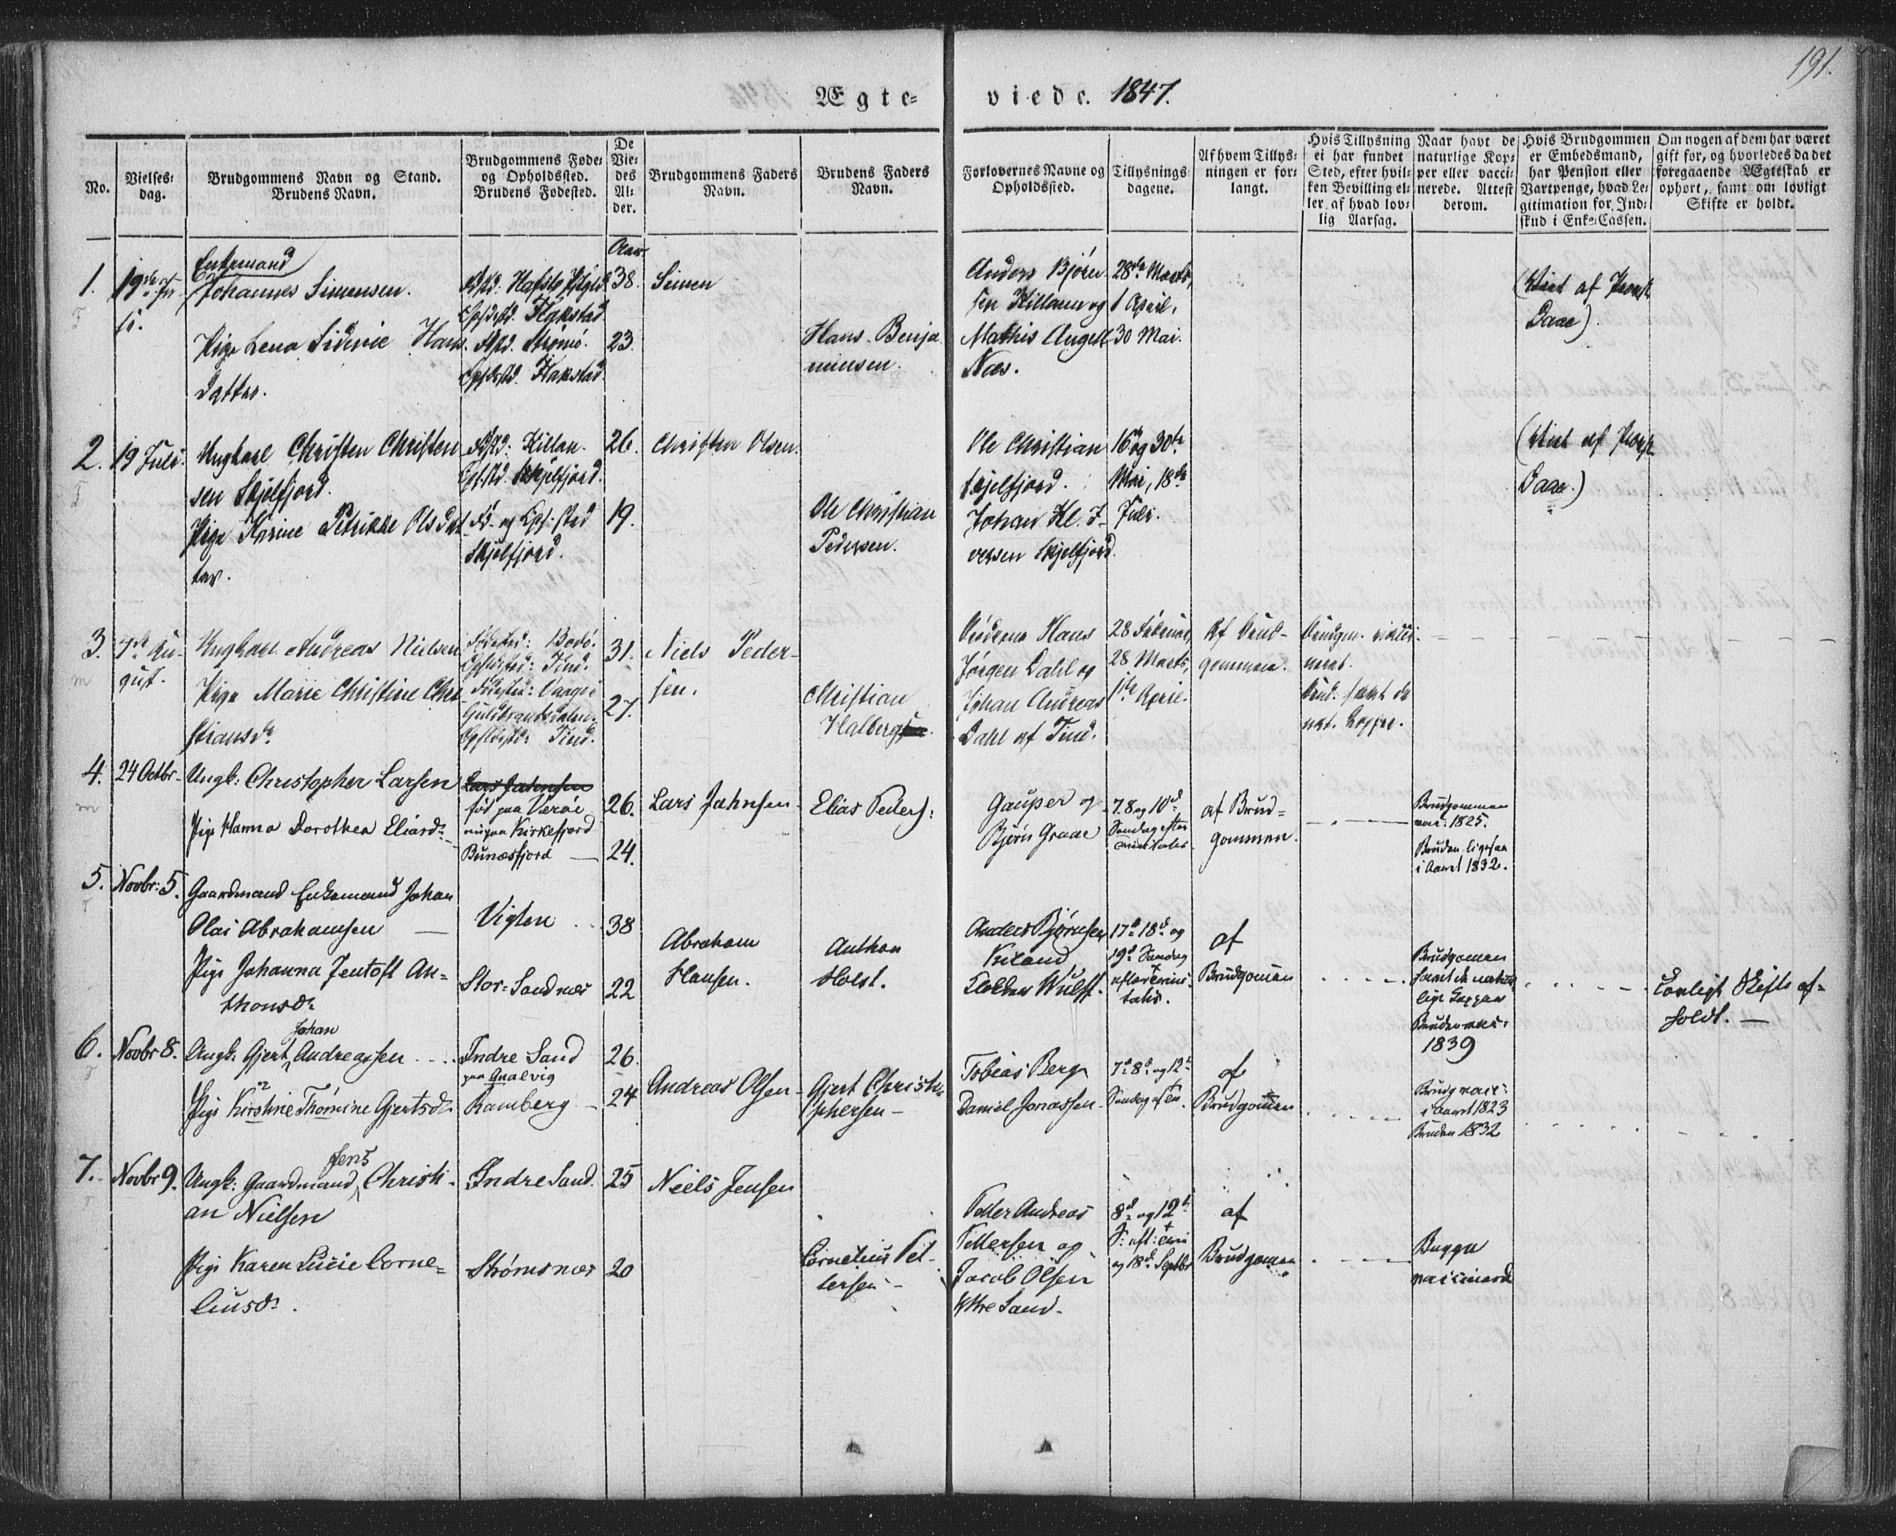 191.
Ægte- viede. 1847.
No.
Vielses-
dag.
Brudgommens Navn og Stand.
Brudens Navn.
Brudgommens Føde-
og Opholdssted.
Brudens Fødested.
De
Vie-
des
Al-
der.
Brudgommens Faders
Navn.
Brudens Faders
Navn.
Forlovernes Navne og
Opholdssted.
Tillysnings-
dagene.
Af hvem Tillys-
ningen er for-
langt.
Hvis Tillysning
ei har fundet
Sted, efter hvil-
ken Bevilling el-
ler af hvad lov-
lig Aarsag.
Naar havt de
naturlige Kop-
per eller vacci-
nerede. Attest
derom.
Hvis Brudgommen
er Embedsmand,
har Pension eller
Vartpenge, hvad Le-
gitimation for Ind-
skud i Enke-Cassen.
Om nogen af dem har været
gift før, og hvorledes da det
foregaaende Ægteskab er
ophørt, samt om lovligt
Skifte er holdt.
Aar
1.
Enkemand
Johannes Simensen.
Pige Lena Sidevie Hans
Datter.
Flakstad
Flakstad
38.
23.
Simen
Hans Benja
minsen.
Anders Bjørn
sen Killann og
Mathis Angell
Næs.
28de Marts,
1 April,
30 Mai.
(Viet af Provst
Daae)
2.
19 Juli.
Ungkarl Christen Christen
sen Skjelfjord.
Pige Karine Petrikke Olsdat
ter.
Fsd: Killan.
Opf.std Skjelfjord.
Fd- og Opf:sted
Skjelfjord.
26.
19.
Christen Olsen.
Ole Christian
Pedersen.
Ole Christian
Skjelfjord.
Johan Kl. I-
versen Skjelfjord.
16de og 30te
Mai, 18de
Juli.
(Viet af Provst
Daae.)
3.
7de Au-
gust.
Ungkarl Andreas Nielsen
Pige Marie Christine Chri
stiansdr
Fødested: Bodø.
Guldbrandsdalen.
31.
27.
Niels Peder-
sen.
Christian
Halberg
Hans
Jørgen Dahl og
Johan Andreas
Dahl af Sund.
28 Februar,
28 Marts,
1ste April.
Af Brud-
gommen.
Brudgm. vakci-
neret.
Brud. havt de
nat. Kopper.
4.
24 Octbr.
Ungk: Christopher Larsen
Pige Hanna Dorothea Eliasdr.
Lars Jahnsen
fød paa Værøe
nu paa Kirkefjord
Bunæsfjord
26.
24.
Lars Jahnsen
Elias Peders:
Gauper og
Bjørn Graae
7. 8 og 10d
Søndag efter
Trinitatis
af Brud-
gommen.
Brudgommen
vac: 1825.
Bruden ligesaa
i Aaret 1832.
5.
Novbr: 5.
Gaardmand Enkemand Johan
Olai Abrahamsen
Pige Johanna Jentoft An-
thonsdr
Vigten
Stor-Sandnæs
38
22
Abraham
Hansen.
Anthon
Holst.
Anders Bjørnsen
Kiland
Wulff.
17d 18d og
19d Søndag
efter Trini
tatis.
af
Brudgommen
Brudgomen
havt de natur
lige Kopper
Bruden vac:
1839
Lovligt Skifte af-
holdt.
6.
Novbr 8.
Ungk: Gjert Johan Andreassen
Pige Kirstine Thomine Gjertsdr.
Indre Sand
paa Qvalvig
Ramberg
26.
24
Andreas Olsen
Gjert Christo-
phersen
Tobias Berg
Daniel Jonassen
7d 8d og 12t
Søndag e Tri.
af
Brudgomen
Brudg vac:
i Aaret 1823
Bruden 1832
7.
Novbr 9.
Ungk: Gaardmand Jens Christi-
an Nielsen
Pige Karen Lucie Corne-
liusdr.
Indre Sand.
Strømsnæs
25
20
Niels Jensen
Cornelius Pet-
tersen
Petter Andreas
Pettersen og
Jacob Olsen
Yttre Sand.
8d og 12t
S: eft: Trini
og 18d Septbr
af
Brudgomen
Begge
vaccinerede